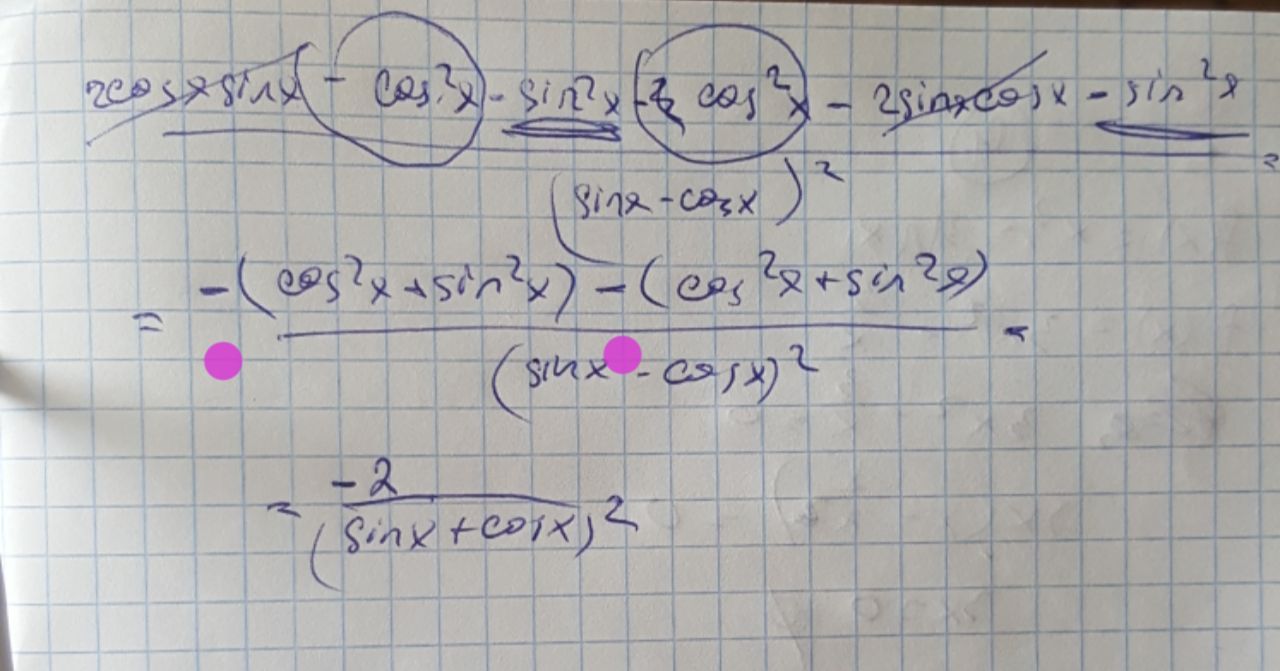 2cosxsinx - cos²x - sin²x - cos²x - 2sinxcosx - sin²x
(sinx - cosx)² =
= -(cos²x + sin²x) - (cos²x + sin²x) =
(sinx - cosx)²
= -2
(sinx + cosx)²